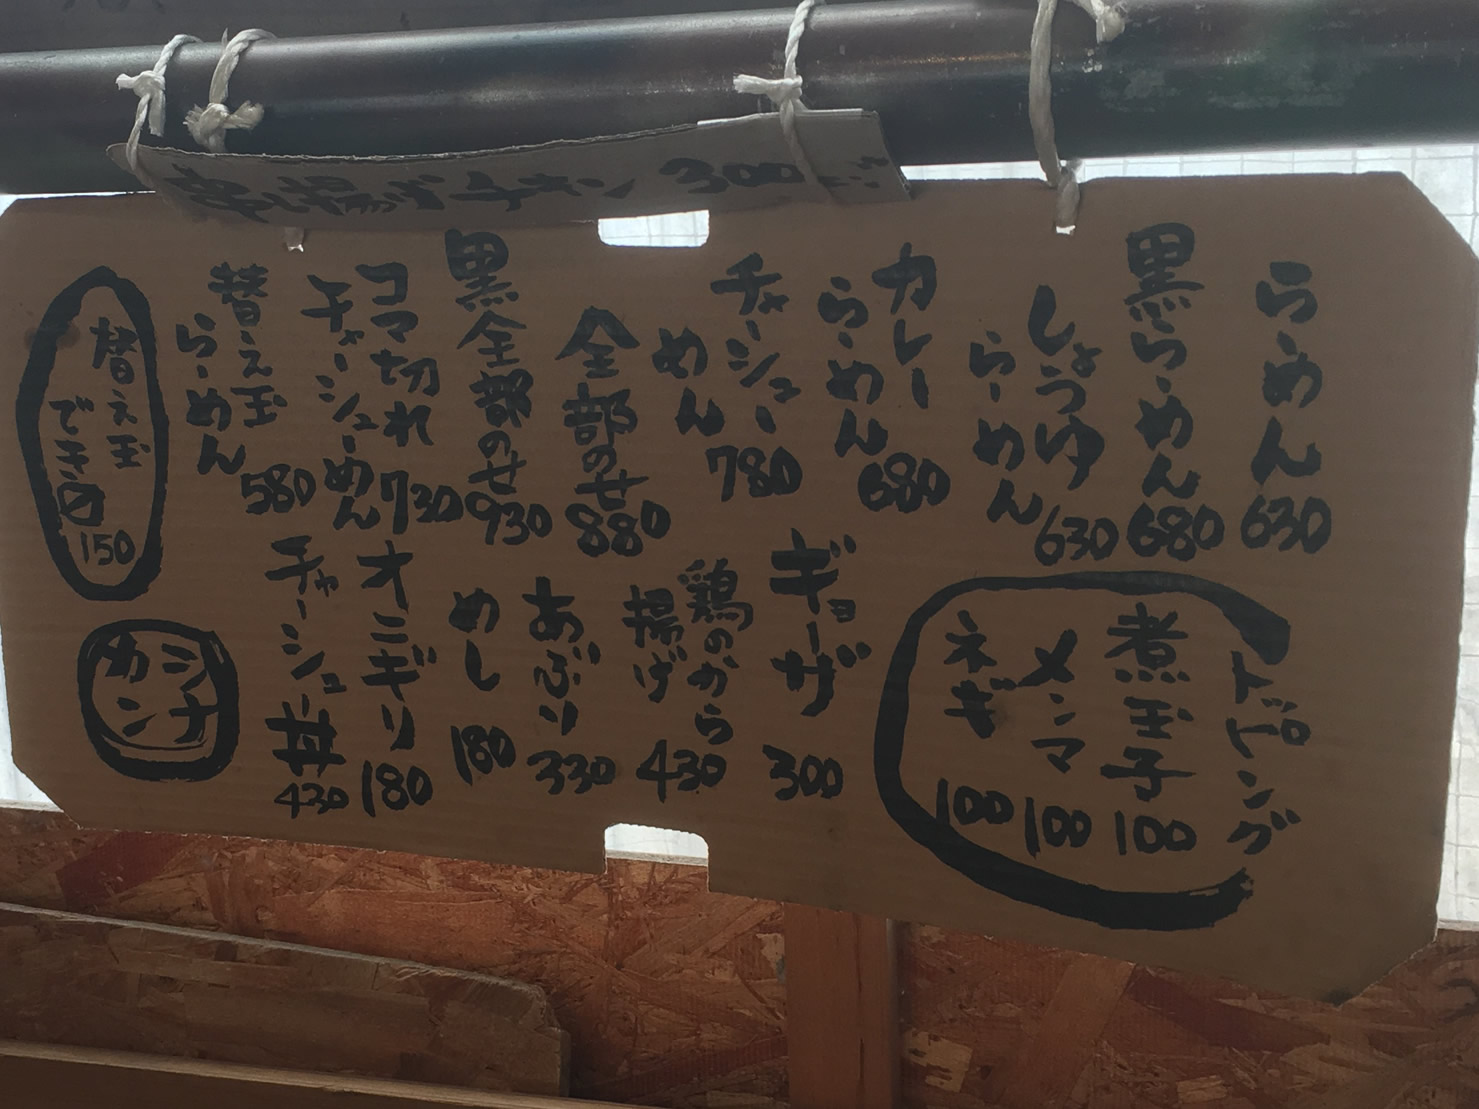 らーめん 630
黒らーめん 680
しょうゆ
らーめん 630
カレー
らーめん 680
チャーシュー
めん 780
全部のせ 880
黒全部のせ 930
コマ切れ
チャーシューめん 730
替え玉
らーめん 580
替え玉
でき〼
150
トッピング
煮玉子 100
メンマ 100
ネギ 100
ギョーザ 300
鶏のから
揚げ 430
あぶり 330
めし 180
オニギリ 180
チャーシュー丼 430
シナ
カン